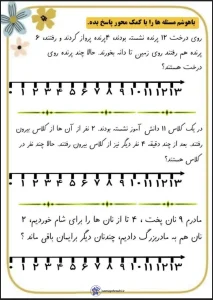 باهوشم مسئله ها را با کمک محور پاسخ بده.
روی درخت ۱۲ پرنده نشسته بودند، ۴پرنده پرواز کردند و رفتند، ۶
پرنده هم رفتند روی زمین تا دانه بخورند. حالا چند پرنده روی
درخت هستند؟
0 1 2 3 4 5 6 7 8 9 10 11 12 13
در یک کلاس ۱۱ دانش آموز نشسته بودند. ۲ نفر از آن ها از کلاس بیرون
رفتند. بعد از چند دقیقه ۴ نفر دیگر نیز از کلاس بیرون رفتند. حالا چند نفر در
کلاس هستند؟
0 1 2 3 4 5 6 7 8 9 10 11 12 13
مادرم ۹ نان پخت ، ۴ تا از نان ها را برای شام خوردیم، ۲
نان هم به مادربزرگ دادیم، چندنان دیگر برایمان باقی ماند ؟
0 1 2 3 4 5 6 7 8 9 10 11 12 13